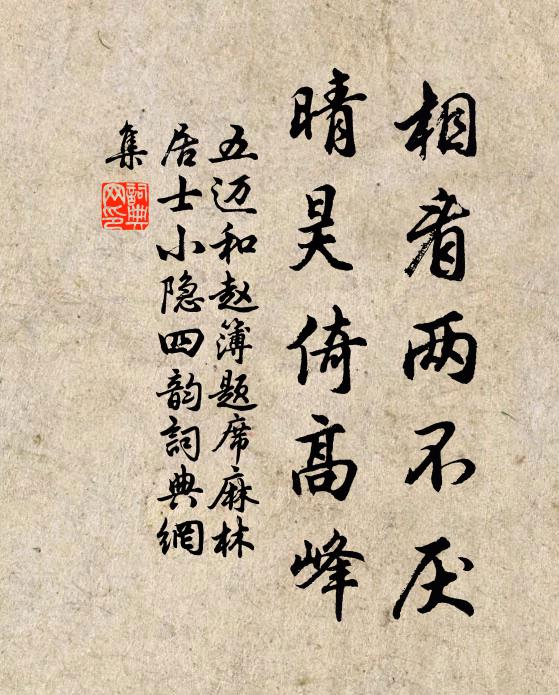 相看两不厌
晴昊倚高峰
五迈和赵簿题席麻林
居士小隐四韵词典網
集
詞典
网印